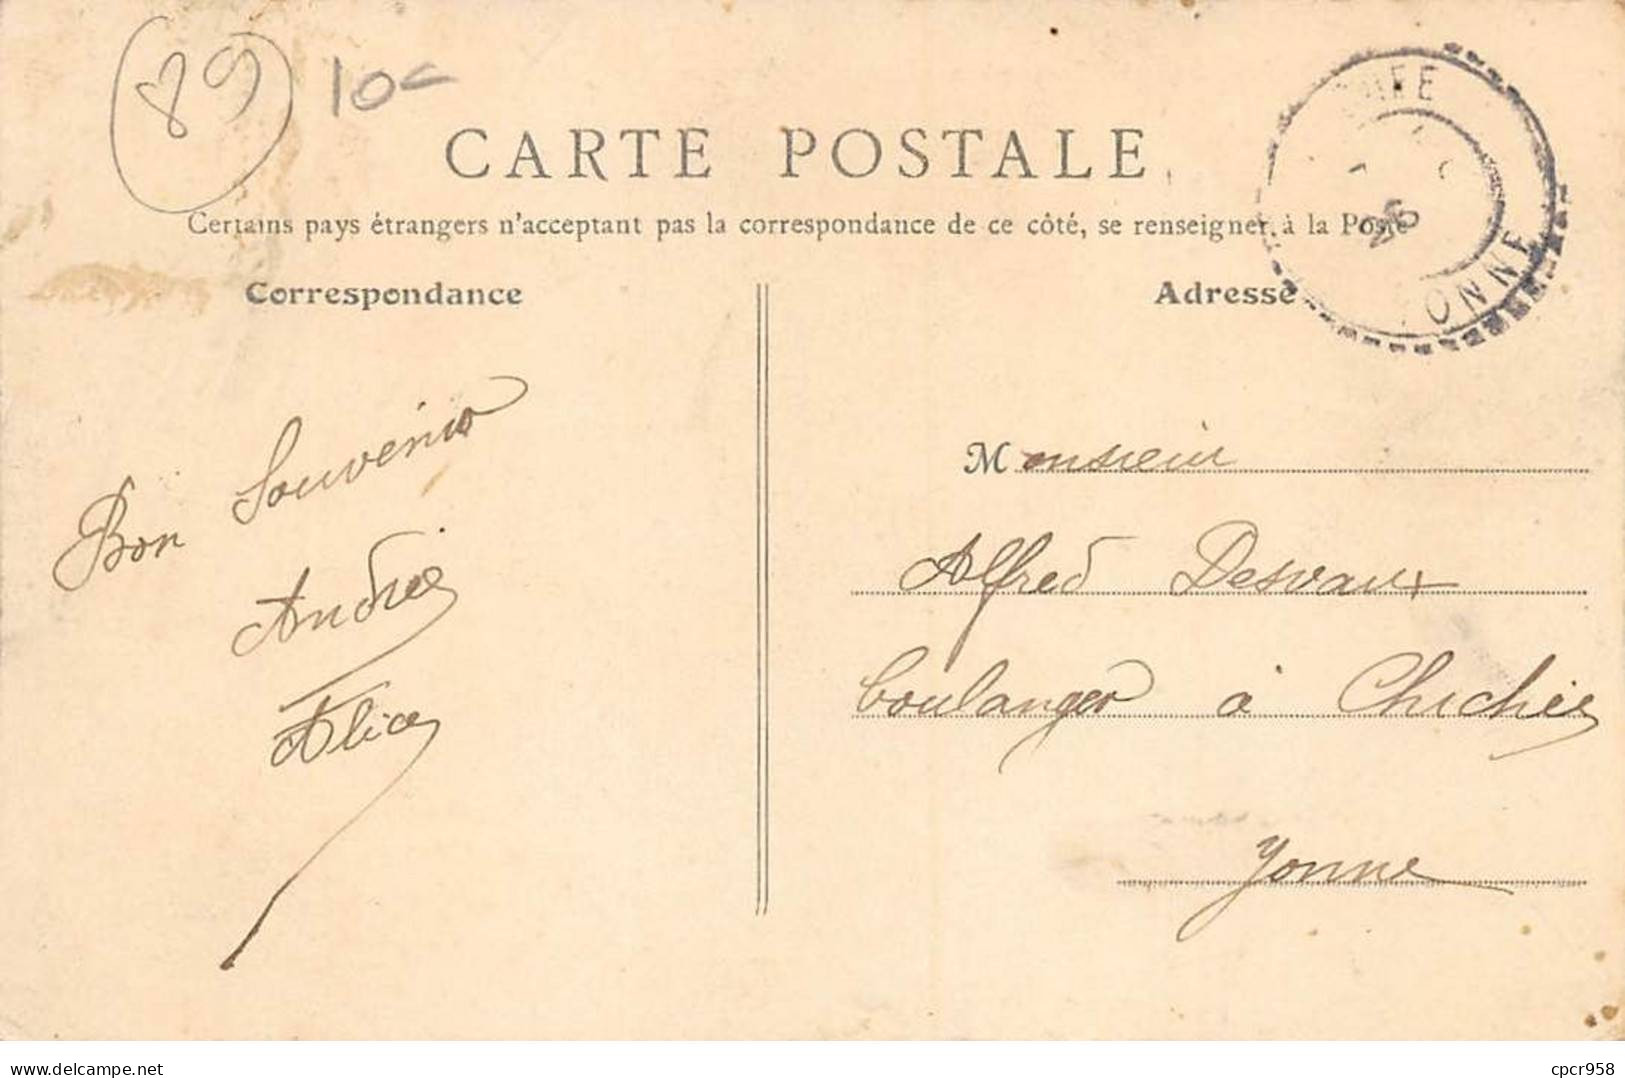 89
10c
CARTE POSTALE
Certains pays étrangers n'acceptant pas la correspondance de ce côté, se renseigner à la Poste
Correspondance
Adresse
ONNE
Bon Souvenir
Andrée
Alice
Monsieur
Alfred Desvaux
boulanger à Chichée
Yonne
www.delcampe.net
cpcr958